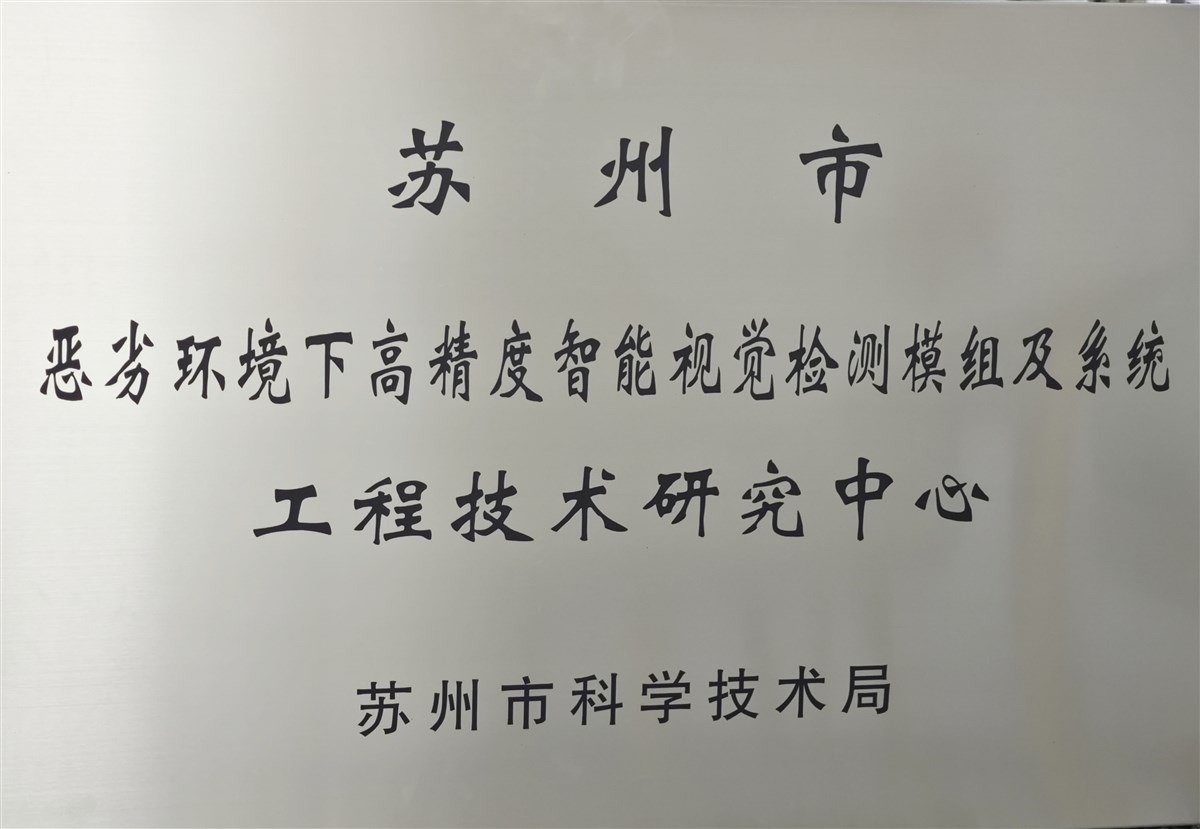 苏州市
恶劣环境下高精度智能视觉检测模组及系统
工程技术研究中心
苏州市科学技术局